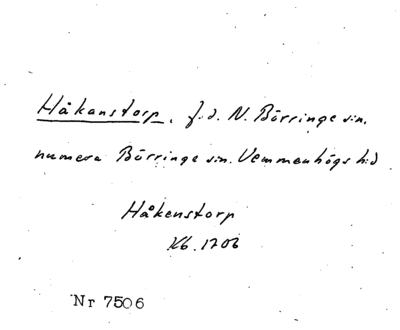 Håkanstorp, f.d. N. Börringe sn.
numera Börringe sn. Vemmenhögs hd
Håkenstorp
Kb. 1706
Nr 7506